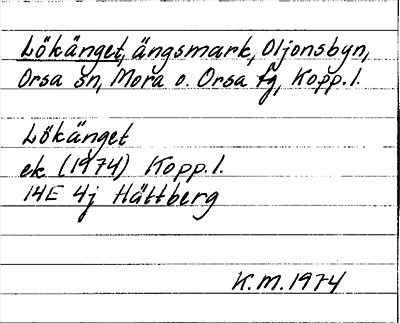 Lökänget, ängsmark, Oljonsbyn,
Orsa sn, Mora o. Orsa tg, Kopp. l.
Lökänget
ek (1974) Kopp. l.
14E 4j Hättberg
K.M. 1974